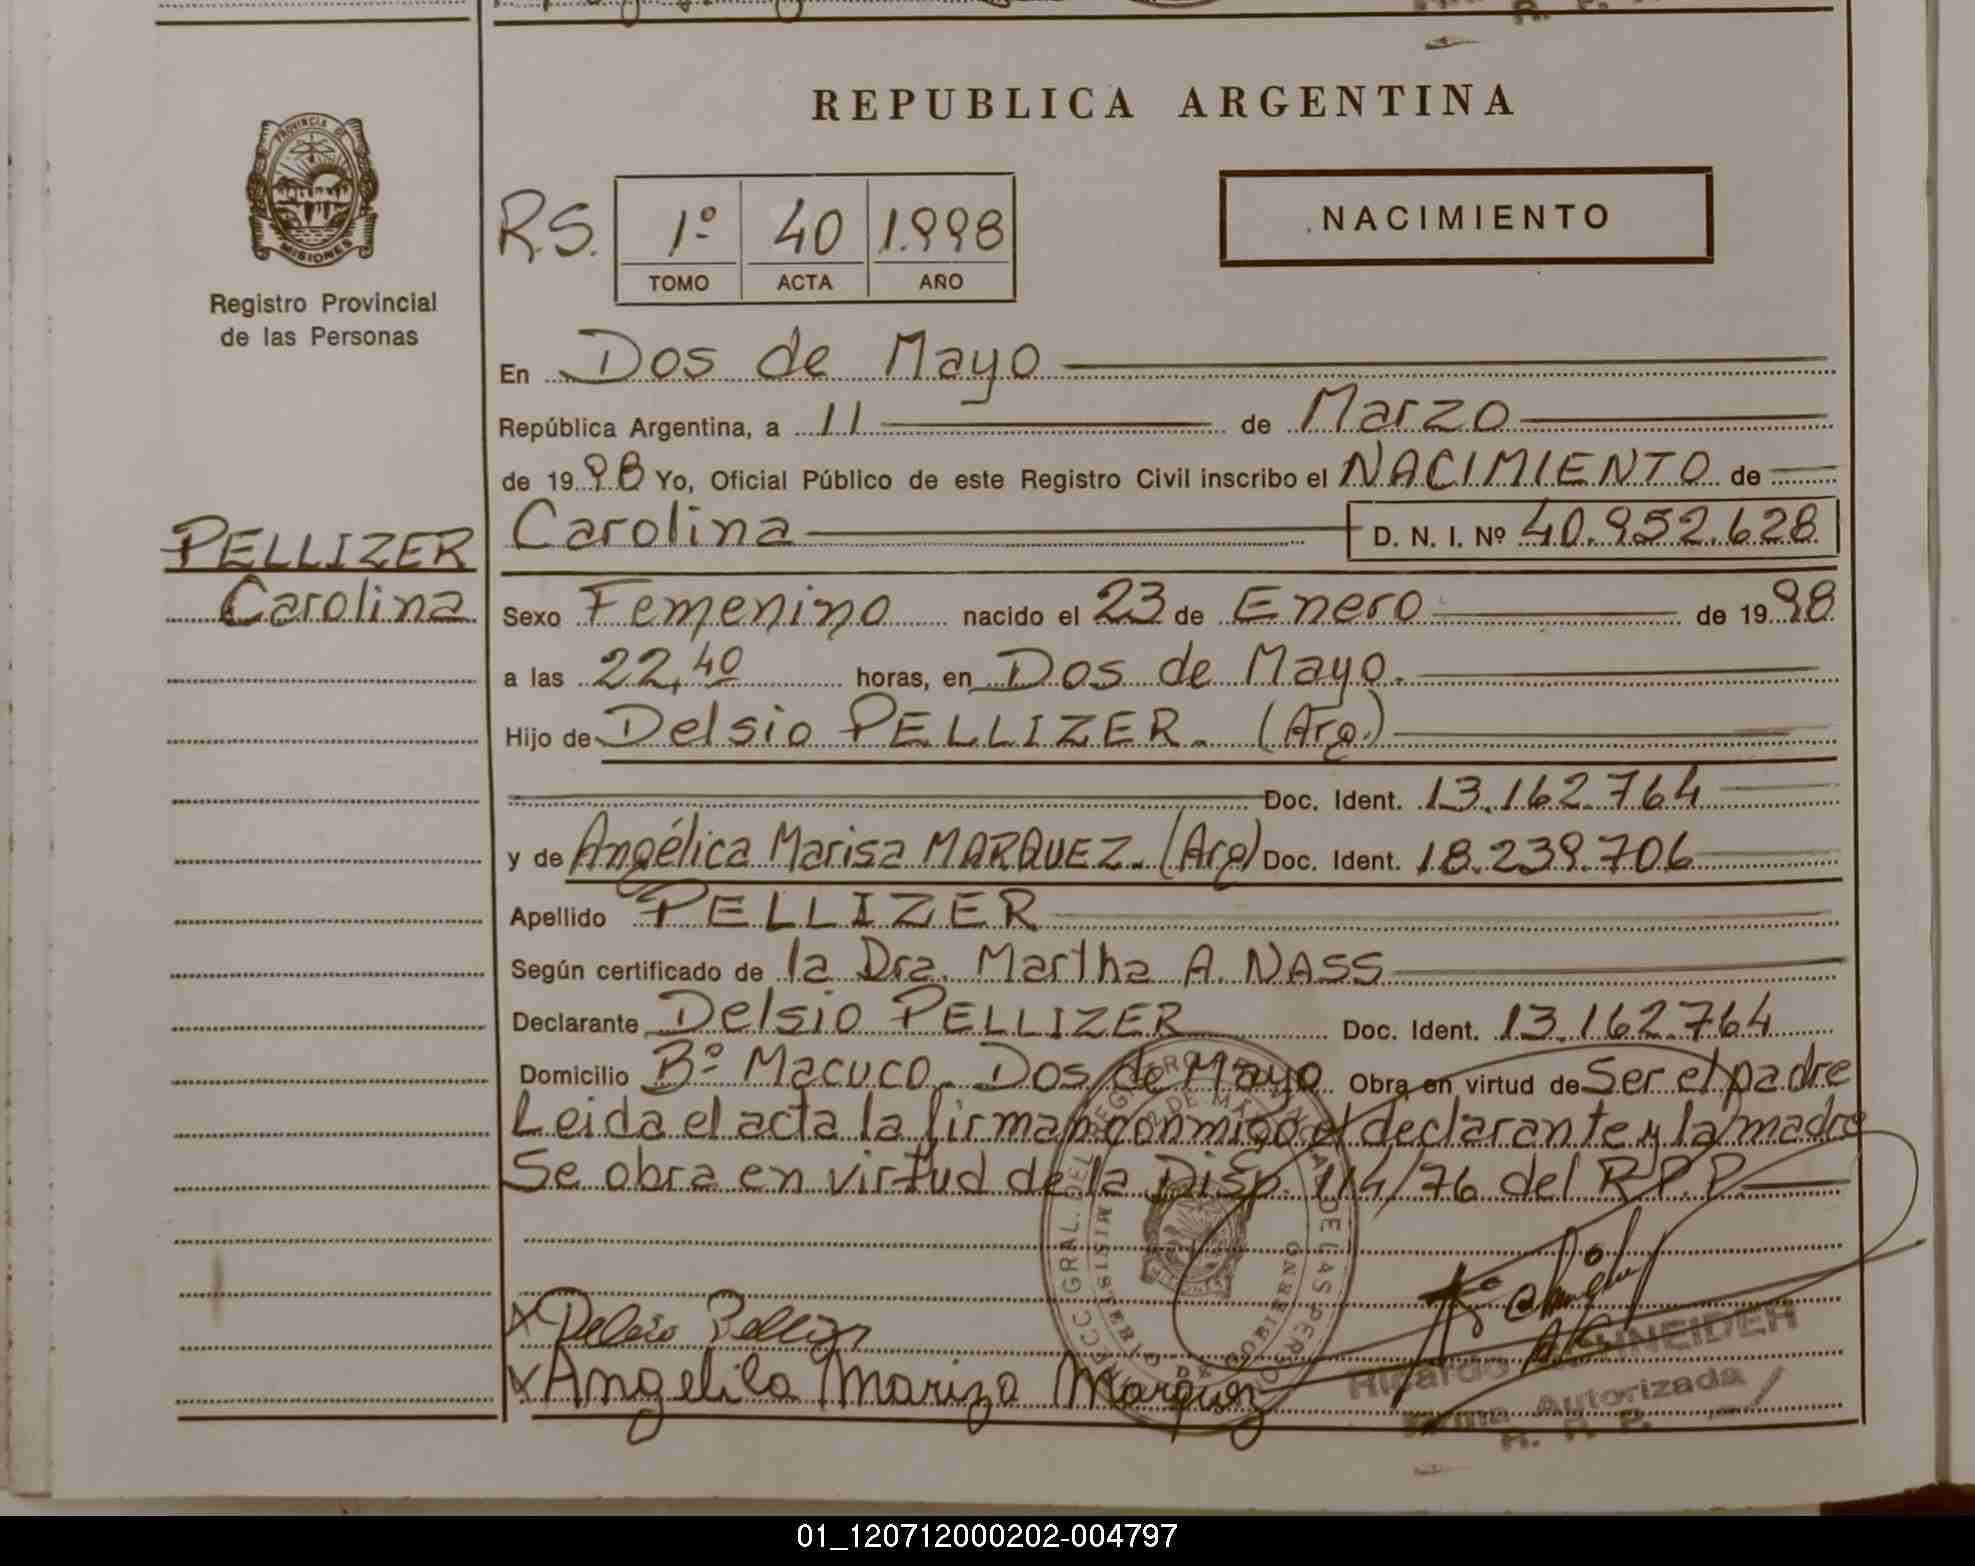 REPUBLICA ARGENTINA
PROVINCIA DE
MISIONES
Registro Provincial
de las Personas
R.S. 1º 40 1.998
TOMO ACTA AÑO
NACIMIENTO
En Dos de Mayo
República Argentina, a 11 de Marzo
de 1998 Yo, Oficial Público de este Registro Civil inscribo el NACIMIENTO de
PELLIZER
Carolina
Carolina D. N. I. Nº 40.952.628
Sexo Femenino nacido el 23 de Enero de 1998
a las 22,40 horas, en Dos de Mayo.
Hijo de Delsio PELLIZER. (Arg.)
Doc. Ident. 13.162.764
y de Angélica Marisa MARQUEZ. (Arg) Doc. Ident. 18.239.706
Apellido PELLIZER
Según certificado de la Dra. Martha A. NASS
Declarante Delsio PELLIZER Doc. Ident. 13.162.764
Domicilio Bº Macuco. Dos de Mayo Obra en virtud de Ser el padre
Leida el acta la firman conmigo el declarante y la madre
Se obra en virtud de la Disp. 114/76 del R.P.P.
x Delsio Pellizer
x Angelica Mariza Marquez
Ricardo SCHNEIDER
Firma Autorizada
R. P. P.
01_120712000202-004797